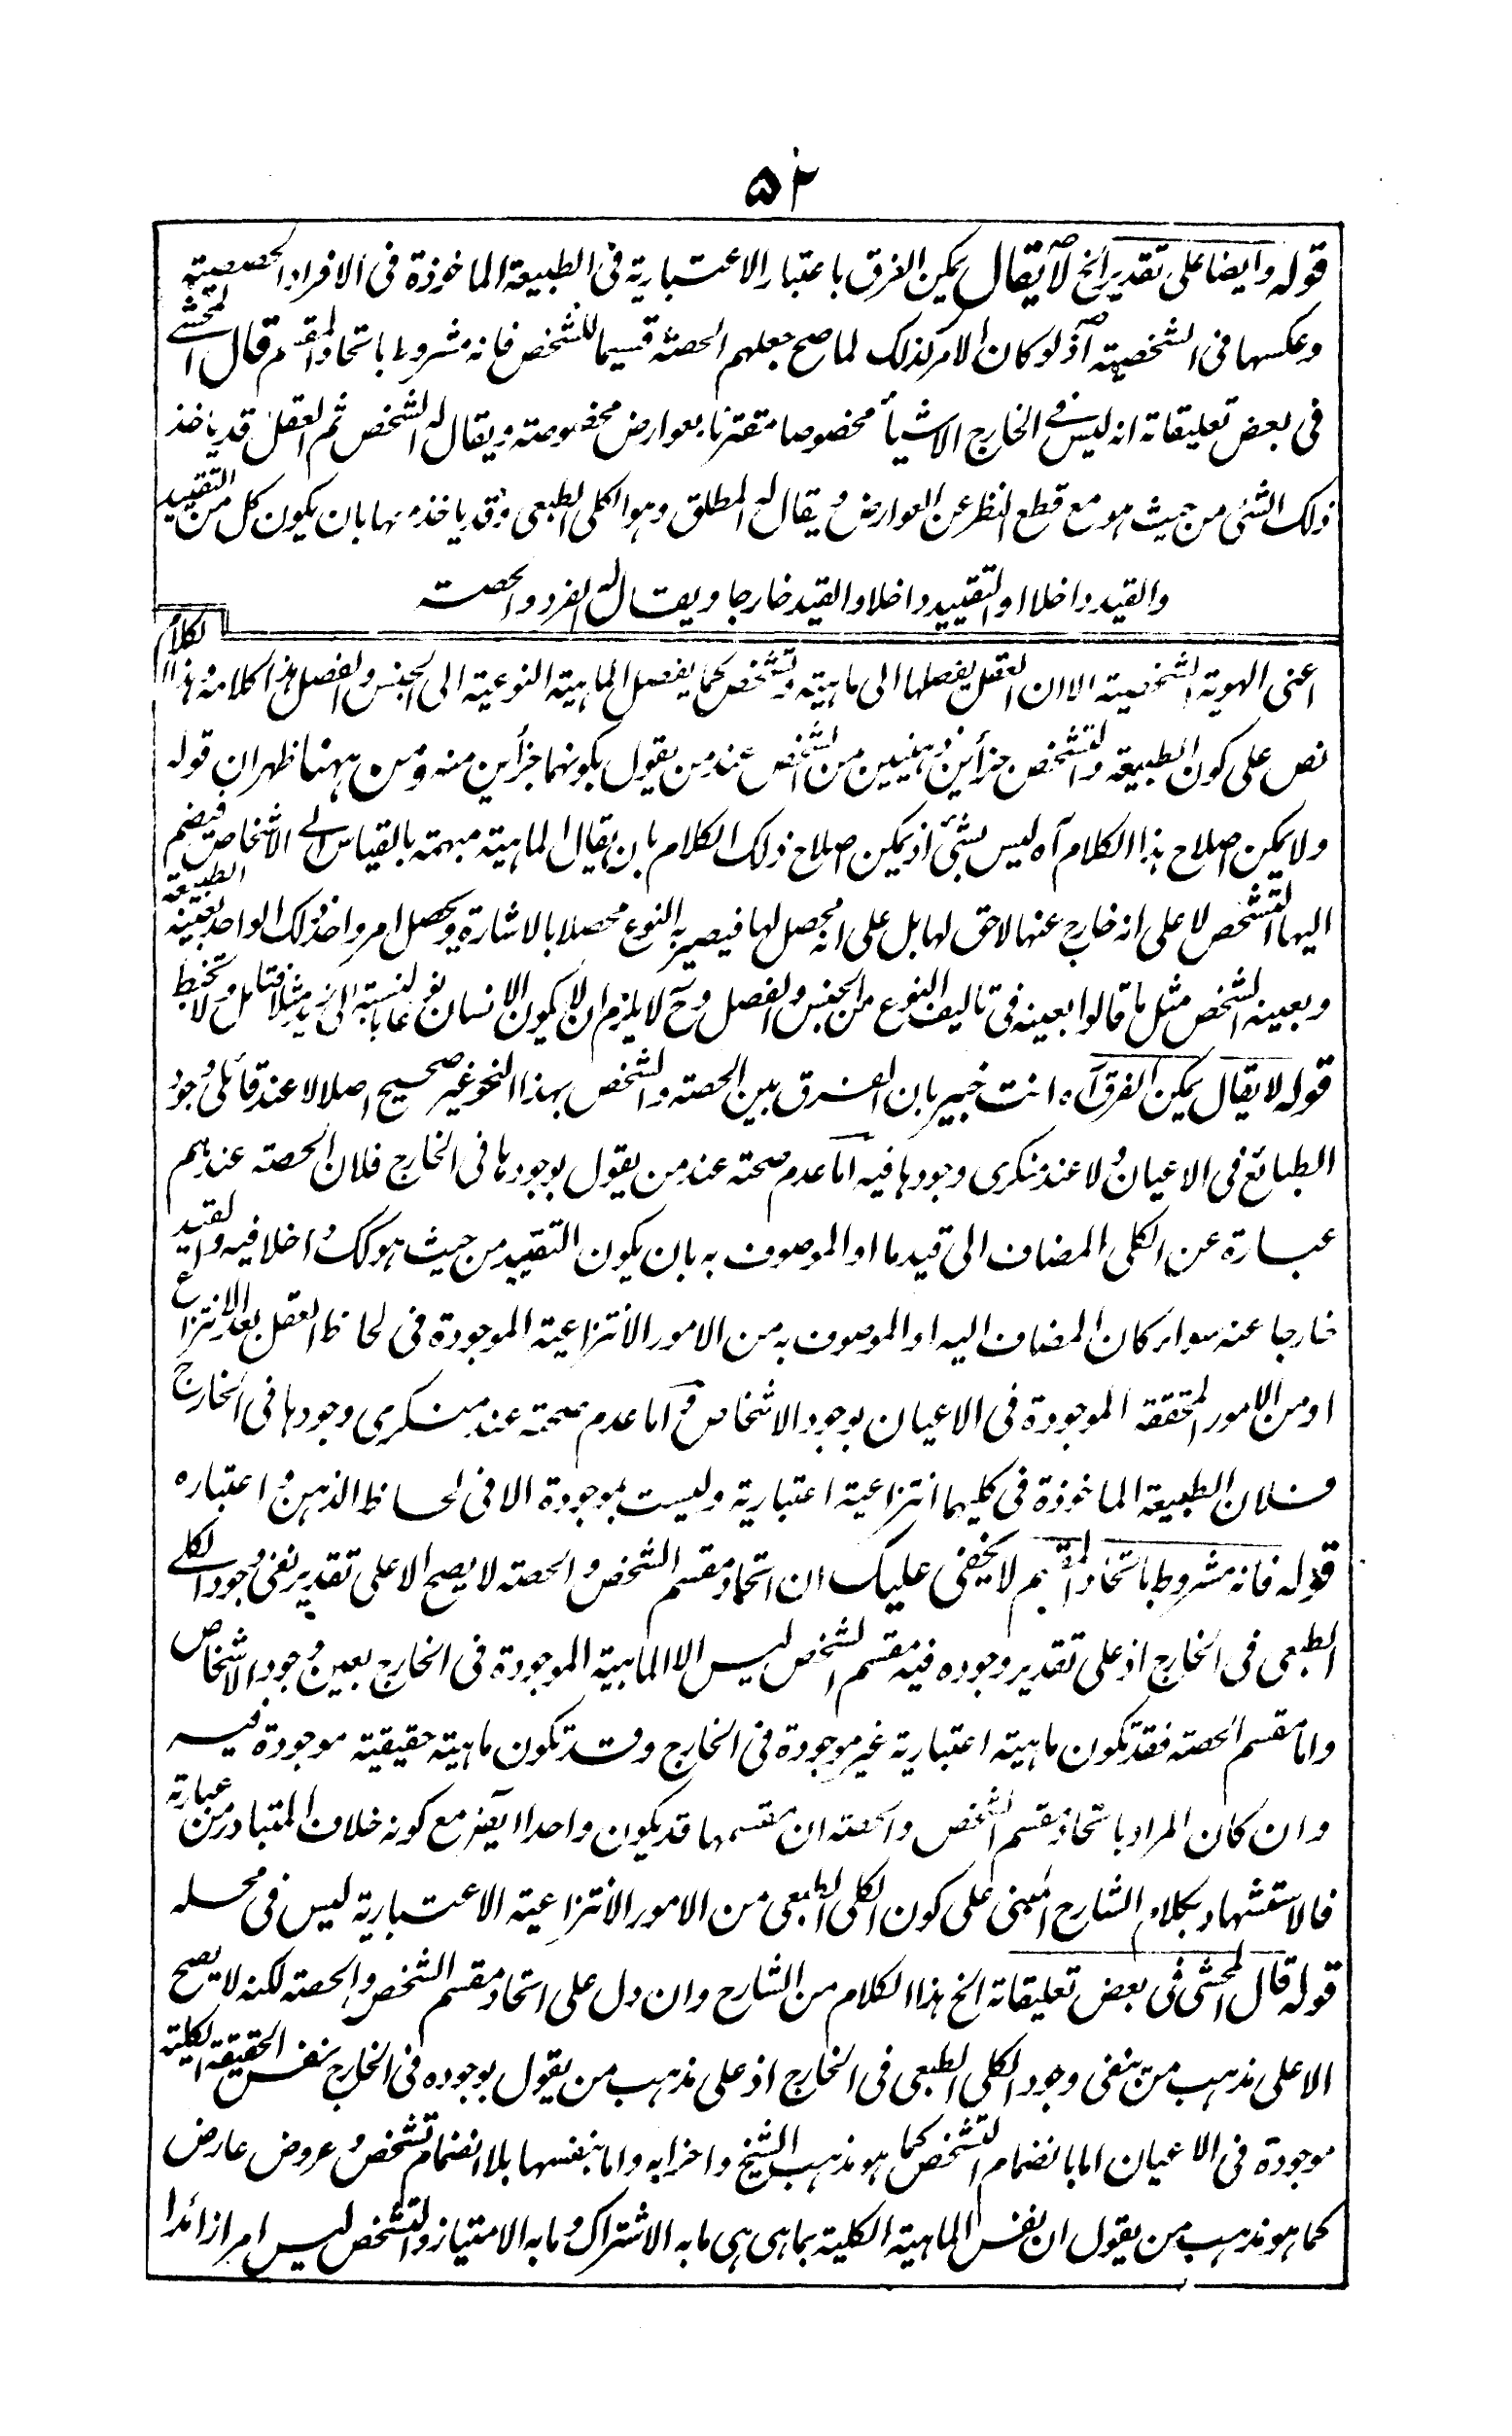 ۵۲
قوله وايضا على تقدير الخ لا يقال يمكن الفرق باعتبار الاعتبارية فى الطبيعة الماخوذة فى الافراد الحصصية
وعكسها فى الشخصية اذ لو كان الامر كذلك لما صح جعلهم الحصة قسيما للشخص فانه مشروط باتحاد المقسم قال المحشے
فى بعض تعليقاته انه ليس فے الخارج الا شيأ مخصوصا مقترنا بعوارض مخصوصة ويقال له الشخص ثم العقل قد ياخذ
ذلك الشئ من حيث هو مع قطع النظر عن العوارض ويقال له المطلق وهو الكلى الطبعى وقد ياخذه بها بان يكون كل من التقييد
والقيد داخلا او التقييد داخلا والقيد خارجا ويقال له الفرد والحصة
اعنى الهوية الشخصية الا ان العقل يفصلها الى ماهية وتشخص كما يفصل الماهية النوعية الى الجنس والفصل هذا كلامه هذا الكلام
نص على كون الطبيعة والتشخص جزأين ذهنيين من الشخص عند من يقول بكونهما جزأين منه ومن ههنا ظهر ان قوله
ولا يمكن اصلاح هذا الكلام آه ليس بشئ اذ يمكن اصلاح ذلك الكلام بان يقال الماهية مبهمة بالقياس الے الاشخاص فيضم
اليها التشخص لا على انه خارج عنها لاحق لها بل على انه محصل لها فيصير به النوع محصلا بالاشارة ويحصل امر واحد وذلك الواحد بعينه الطبيعة
وبعينه الشخص مثل ما قالوا بعينه فى تاليف النوع من الجنس والفصل وح لا يلزم ان لا يكون الانسان نوعا بالنسبة الى زيد مثلا فتامل ولا تخبط
قوله لا يقال يمكن الفرق آه انت خبير بان الفرق بين الحصة والشخص بهذا النحو غير صحيح اصلا لا عند قائلى وجود
الطبائع فى الاعيان ولا عند منكرى وجودها فيه اما عدم صحته عند من يقول بوجودها فى الخارج فلان الحصة عندهم
عبارة عن الكلى المضاف الى قيد ما او الموصوف به بان يكون التقييد من حيث هو كك داخلا فيه والقيد
خارجا عنه سواء كان المضاف اليه او الموصوف به من الامور الانتزاعية الموجودة فى لحاظ العقل بعد الانتزاع
او من الامور المتحققة الموجودة فى الاعيان بوجود الاشخاص واما عدم صحته عند منكرى وجودها فى الخارج
فلان الطبيعة الماخوذة فى كليهما انتزاعية اعتبارية وليست بموجودة الا فى لحاظ الذهن واعتباره
قوله فانه مشروط باتحاد المقسم لا يخفى عليك ان اتحاد مقسم الشخص والحصة لا يصح الا على تقدير نفى وجود الكلے
الطبعى فى الخارج اذ على تقدير وجوده فيه مقسم الشخص ليس الا الماهية الموجودة فى الخارج بعين وجود الاشخاص
واما مقسم الحصة فقد تكون ماهية اعتبارية غير موجودة فى الخارج وقد تكون ماهية حقيقية موجودة فيه
وان كان المراد باتحاد مقسم الشخص والحصة ان مقسمها قد يكون واحدا ايضا فمع كونه خلاف المتبادر من عبارته
فالاستشهاد بكلام الشارح المبنى على كون الكلى الطبعى من الامور الانتزاعية الاعتبارية ليس فى محله
قوله قال المحشى فى بعض تعليقاته الخ هذا الكلام من الشارح وان دل على اتحاد مقسم الشخص والحصة لكنه لا يصح
الا على مذهب من ينفى وجود الكلى الطبعى فى الخارج اذ على مذهب من يقول بوجوده فى الخارج نفس الحقيقة الكلية
موجودة فى الاعيان اما بانضمام التشخص كما هو مذهب الشيخ واحزابه واما بنفسها بلا انضمام تشخص وعروض عارض
كما هو مذهب من يقول ان نفس الماهية الكلية بما هى هى ما به الاشتراك وما به الامتياز والتشخص ليس امرا زائدا